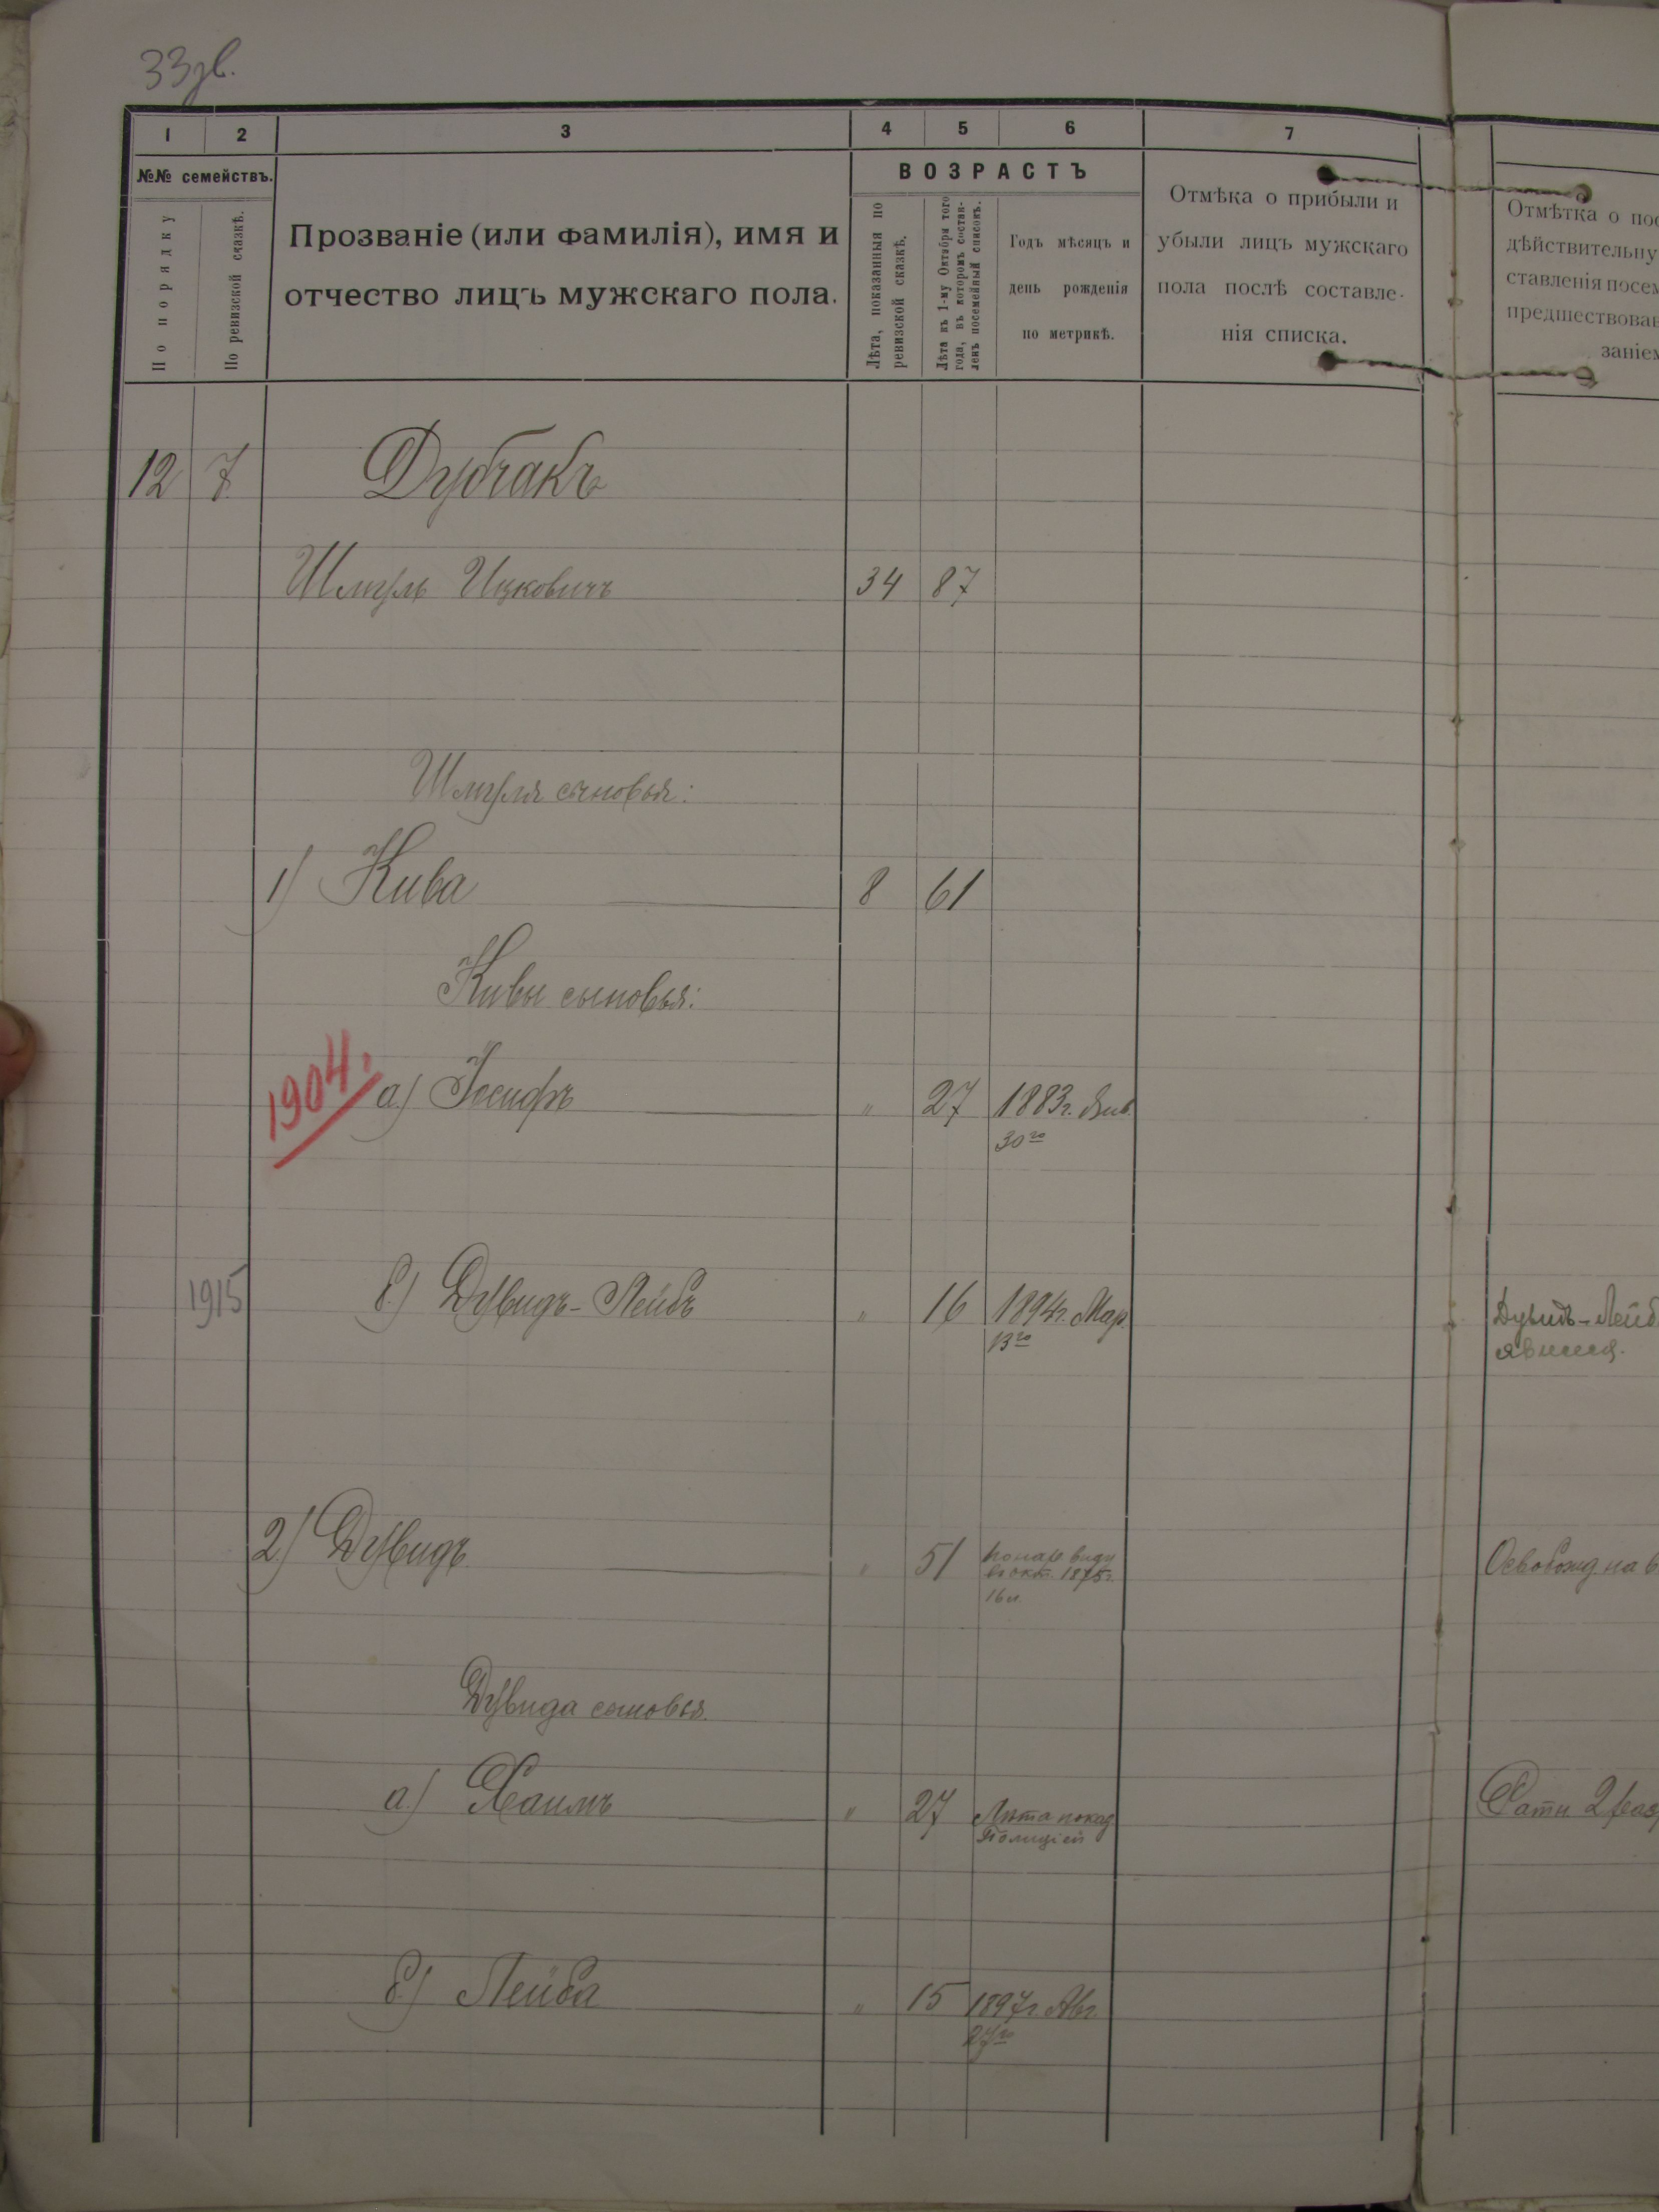 33зв.
1 2 3 4 5 6 7
№№ семействъ.
По порядку
По ревизской сказкѣ.
Прозваніе (или фамилія), имя и
отчество лицъ мужскаго пола.
ВОЗРАСТЪ
Лѣта, показанныя по
ревизской сказкѣ.
Лѣта къ 1-му Октября того
года, въ которомъ состав-
ленъ посемейный списокъ.
Годъ мѣсяцъ и
день рожденія
по метрикѣ.
Отмѣка о прибыли и
убыли лицъ мужскаго
пола послѣ составле-
нія списка.
Отмѣтка о пос
дѣйствительну
ставленія посем
предшествован
заніем
12 7 Дубчакъ
Шмуль Ицковичъ 34 87
Шмуля сыновья:
1) Кива 8 61
Кивы сыновья:
1904г.
а) Іосифъ " 27 1883г. Янв.
30го
1915 б) Дувидъ-Лейбъ " 16 1894г. Мар.
13го
Дувидъ-Лейб
явился.
2) Дувидъ " 51 по нар виду
въ окт. 1875г.
16 л.
Освобожд. на
Дувида сыновья.
а) Хаимъ " 27 Лѣта показ.
Полиціей
б) Лейба " 15 1897г. Авг.
27го